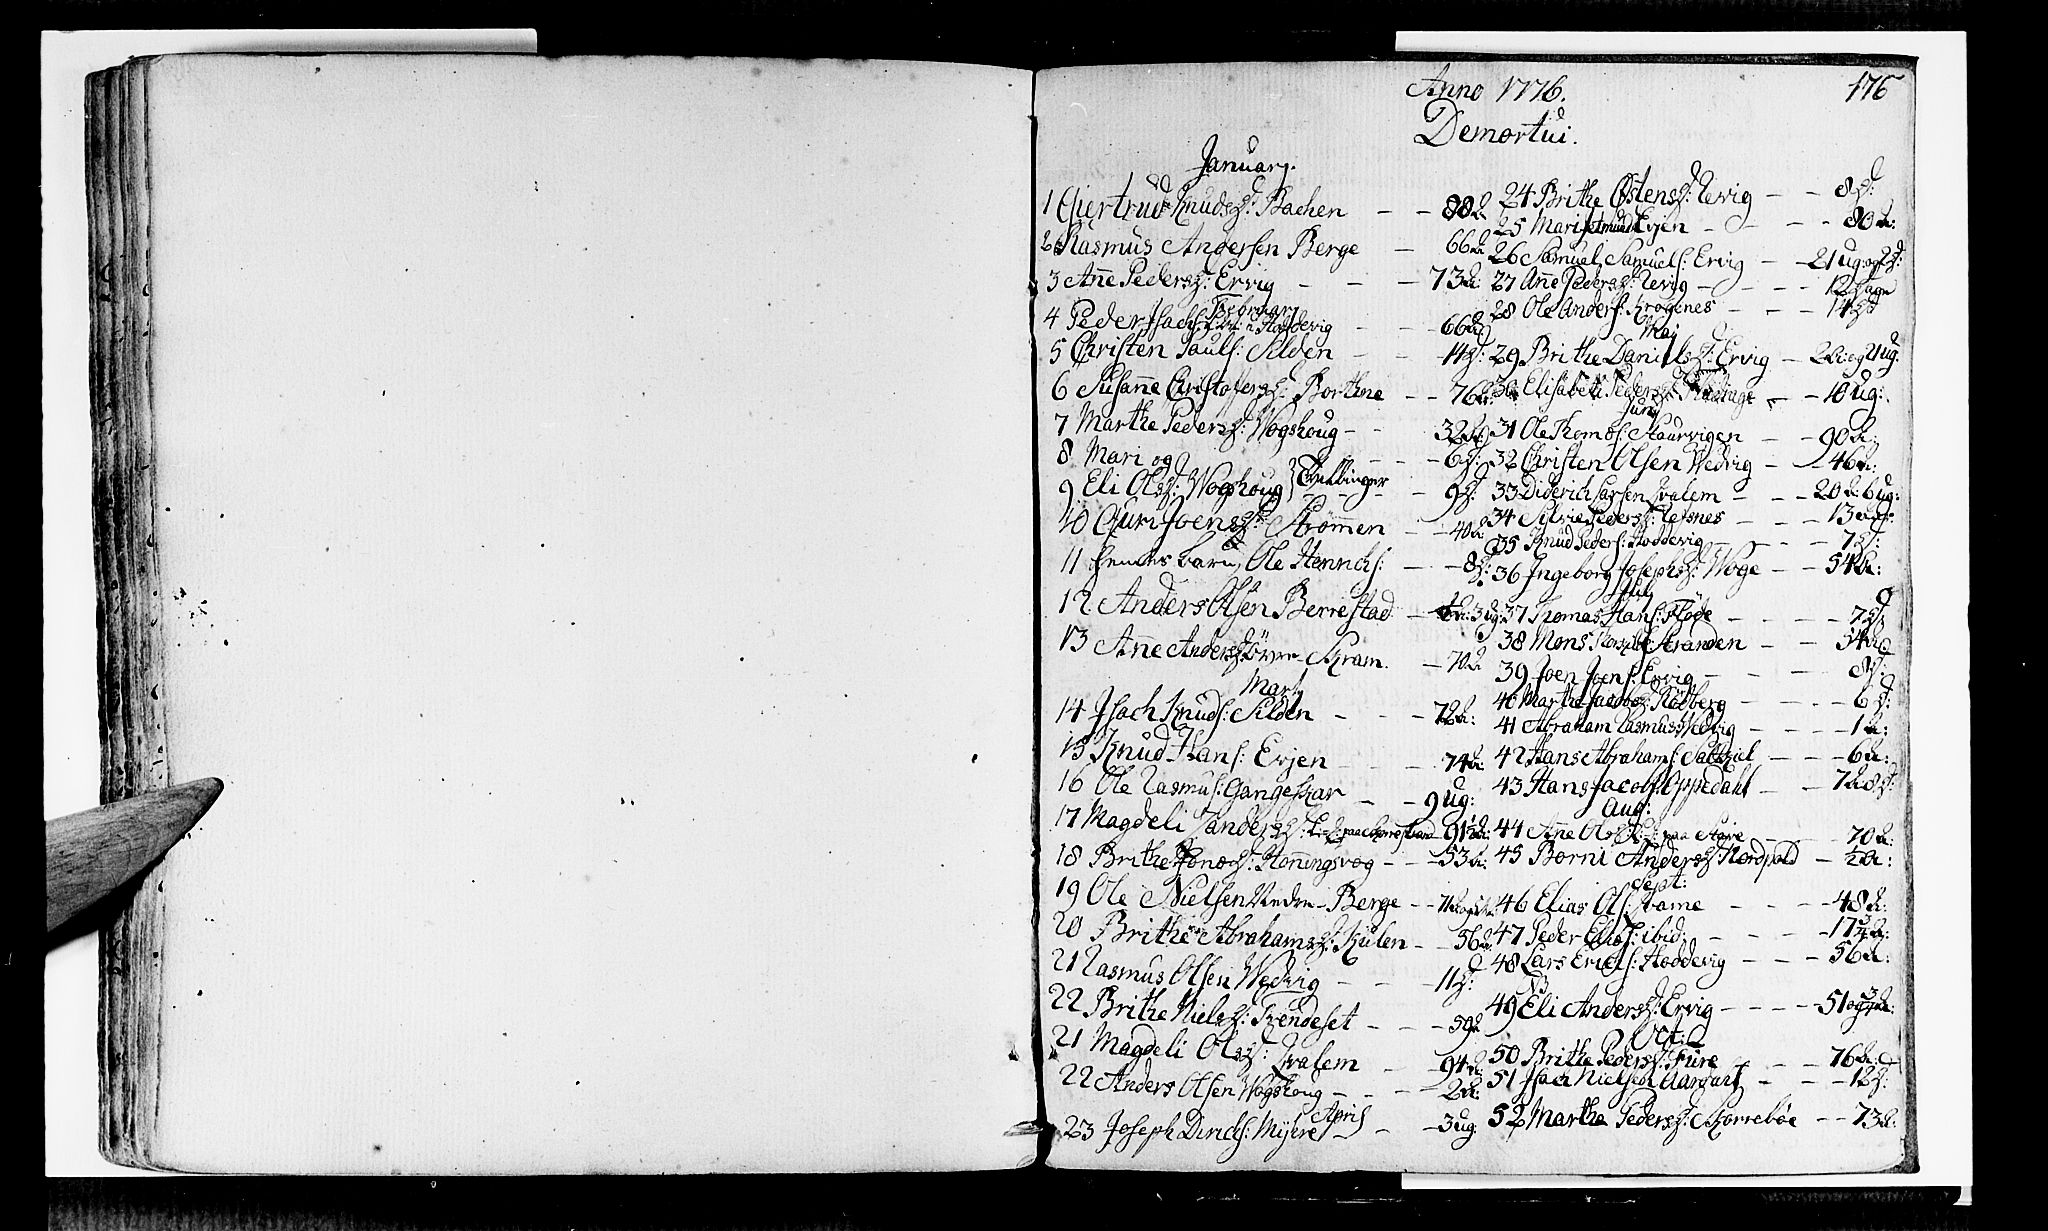 Anno 1776.
176
Demortui.
January.
1 Giertrud Knudsd: Bachen - - 88 Ar
2 Rasmus Andersen Berge - 66 Ar
3 Anne Pedersd: Ervig - - - 73 Ar
Februar
4 Peder Isachs: Hoddevig - - - 66 Ar
5 Christen Pauls: Silden - - 14 d:
6 Susanne Christophersd: Borthne - - 76 Ar:
7 Marthe Pedersd: Wogshoug - - 32 Ar:
8 Mari og - - - 6 d:
9 Eli Olsd: Wogshoug } Tvillinger - 9 d:
10 Guri Joensd: Strømmen - - 40 Ar
11 hendes barn, Ole Henrichs: - - 8 d:
12 Anders Olsen Berrestad - 3 ug:
13 Anne Andersd: øvre-Skram. - 70 Ar
Marty
14 Isach Knuds: Silden - - - 72 Ar:
15 Knud Hans: Erjen - - - 74 Ar
16 Ole Rasmus: Gangeskar - - 9 ug:
17 Magdeli Randersd: 91½ Ar:
18 Brithe Jonsd: Honningsvog - - - 53 Ar:
19 Ole Nielsen Nedre-Berge - - 71 Ar
20 Brithe Abrahamsd: Kulen - - 56 Ar
21 Rasmus Olsen Wedvig - - - 11 d:
22 Brithe Nielsd: Skendeset - - - 59 Ar
21 Magdeli Olsd: Qvalem - - 94 Ar
22 Anders Olsen Wogshoug - - - 2 Ar:
April
23 Joseph Dirichs: Myhre - - 3 ug:
24 Brithe Østensd: Revig - - 8 d:
25 Mari Erjen - - - - 80 Ar:
26 Samuel Samuels: Ervig - - 21 ug: og 2 d:
27 Anne Pedersd: Revig - - - - 12 dage
28 Ole Anders: Krogenes - - - 14 d
Maj
29 Brithe Danielsd: Ervig - 2 Ar: og 21 ug:
30 Elisabeth Pedersd: - - 10 ug:
Juny
31 Ole Thomas: Staurvigen - - 90 Ar:
32 Christen Olsen Wedvig - - 46 Ar:
33 Diderich Larsen Qvalem - - - 20 Ar: 6 ug:
34 Silvie Pedersd: Refsnes - - - 13 Ar
35 Knud Peders: Hoddevig - - - 7 d:
36 Ingeborg Josephsd: Woge - - 54 Ar:
July
37 Thomas Hans: Fløde - - - - 7 d
38 Mons Stranden - - 54 Ar
39 Joen Joens: Ervig - - - - 8 d:
40 Marthe Jacobsd: Rødberg - - - - 6 d:
41 Abraham Rasmuss: Wedvig - - - - 1 Ar:
42 Hans Abrahams: Saltkiel - - - 6 Ar:
43 Hans Jacobs: Oppedahl - - 7 Ar 8 d:
Aug:
44 Anne Olsd: paa Stave - - - 70 Ar:
45 Berni Andersd: Nordpold - ½ Ar:
Sept:
46 Elias Ols: Qvame - - - - 48 Ar:
47 Peder Elias: ibid: - - - - 17¾ Ar:
48 Lars Erichs: Hoddevig - - - 56 Ar:
49 Eli Andersd: Ervig - - - - 51 og ¾ Ar:
Oct:
50 Brithe Pedersd: Fure - - - 76 Ar:
51 Isach Nielsen Aardahl - - - 12 d:
52 Marthe Pedersd: Skorrebøe - - 73 Ar: